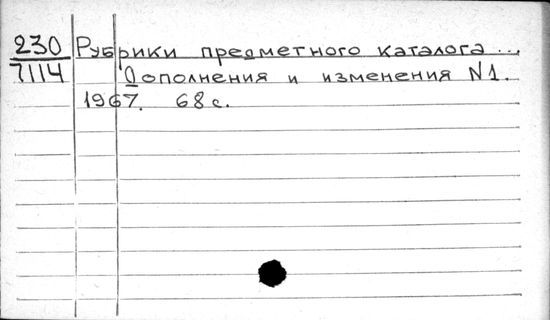 230 Рубрики предметного каталога...
7114 Дополнения и изменения N1.
1967. 68 с.